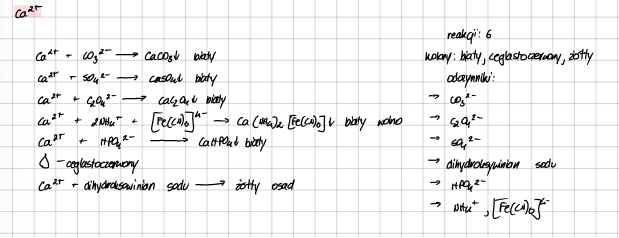 Ca²⁺
Ca²⁺ + CO₃²⁻ → CaCO₃↓ biały
Ca²⁺ + SO₄²⁻ → CaSO₄↓ biały
Ca²⁺ + C₂O₄²⁻ → CaC₂O₄↓ biały
Ca²⁺ + 2NH₄⁺ + [Fe(CN)₆]⁴⁻ → Ca(NH₄)₂[Fe(CN)₆]↓ biały wolno
Ca²⁺ + HPO₄²⁻ → CaHPO₄↓ biały
- ceglastoczerwony
Ca²⁺ + dihydroksywinian sodu → żółty osad
reakcji: 6
kolory: biały, ceglastoczerwony, żółty
odczynniki:
→ CO₃²⁻
→ C₂O₄²⁻
→ SO₄²⁻
→ dihydroksywinian sodu
→ HPO₄²⁻
→ NH₄⁺, [Fe(CN)₆]⁴⁻